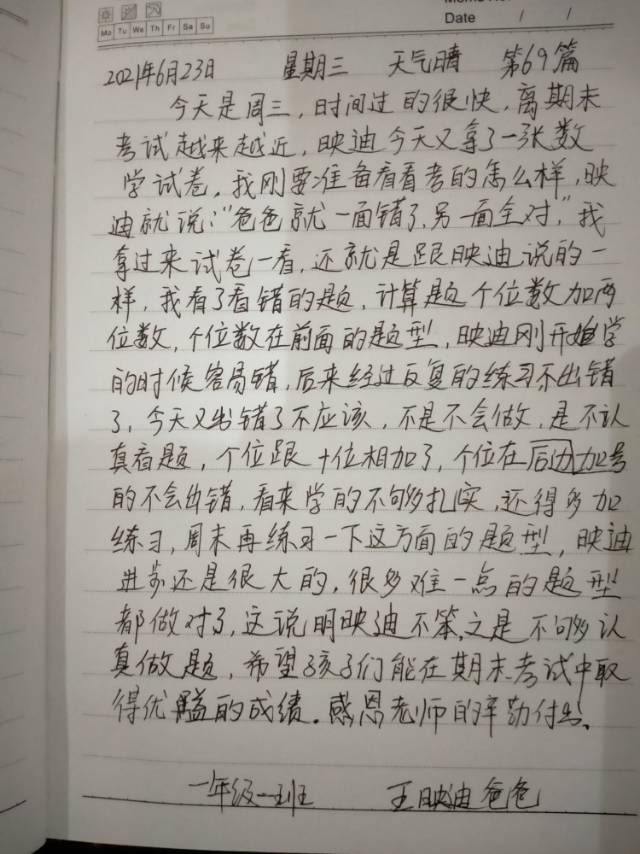 Date / /
Mo Tu We Th Fr Sa Su
2021年6月23日 星期三 天气晴 第69篇
今天是周三，时间过的很快，离期末
考试越来越近，映迪今天又拿了一张数
学试卷，我刚要准备看看考的怎么样，映
迪就说："爸爸就一面错了，另一面全对，"我
拿过来试卷一看，还就是跟映迪说的一
样，我看了看错的题，计算题个位数加两
位数，个位数在前面的题型，映迪刚开始学
的时候容易错，后来经过反复的练习不出错
了，今天又出错了不应该，不是不会做，是不认
真看题，个位跟十位相加了，个位在后边加号
的不会出错，看来学的不够扎实，还得多加
练习，周末再练习一下这方面的题型，映迪
进步还是很大的，很多难一点的题型
都做对了，这说明映迪不笨，之是不够认
真做题，希望孩子们能在期末考试中取
得优异的成绩。感恩老师的辛勤付出、
一年级一班 王映迪爸爸